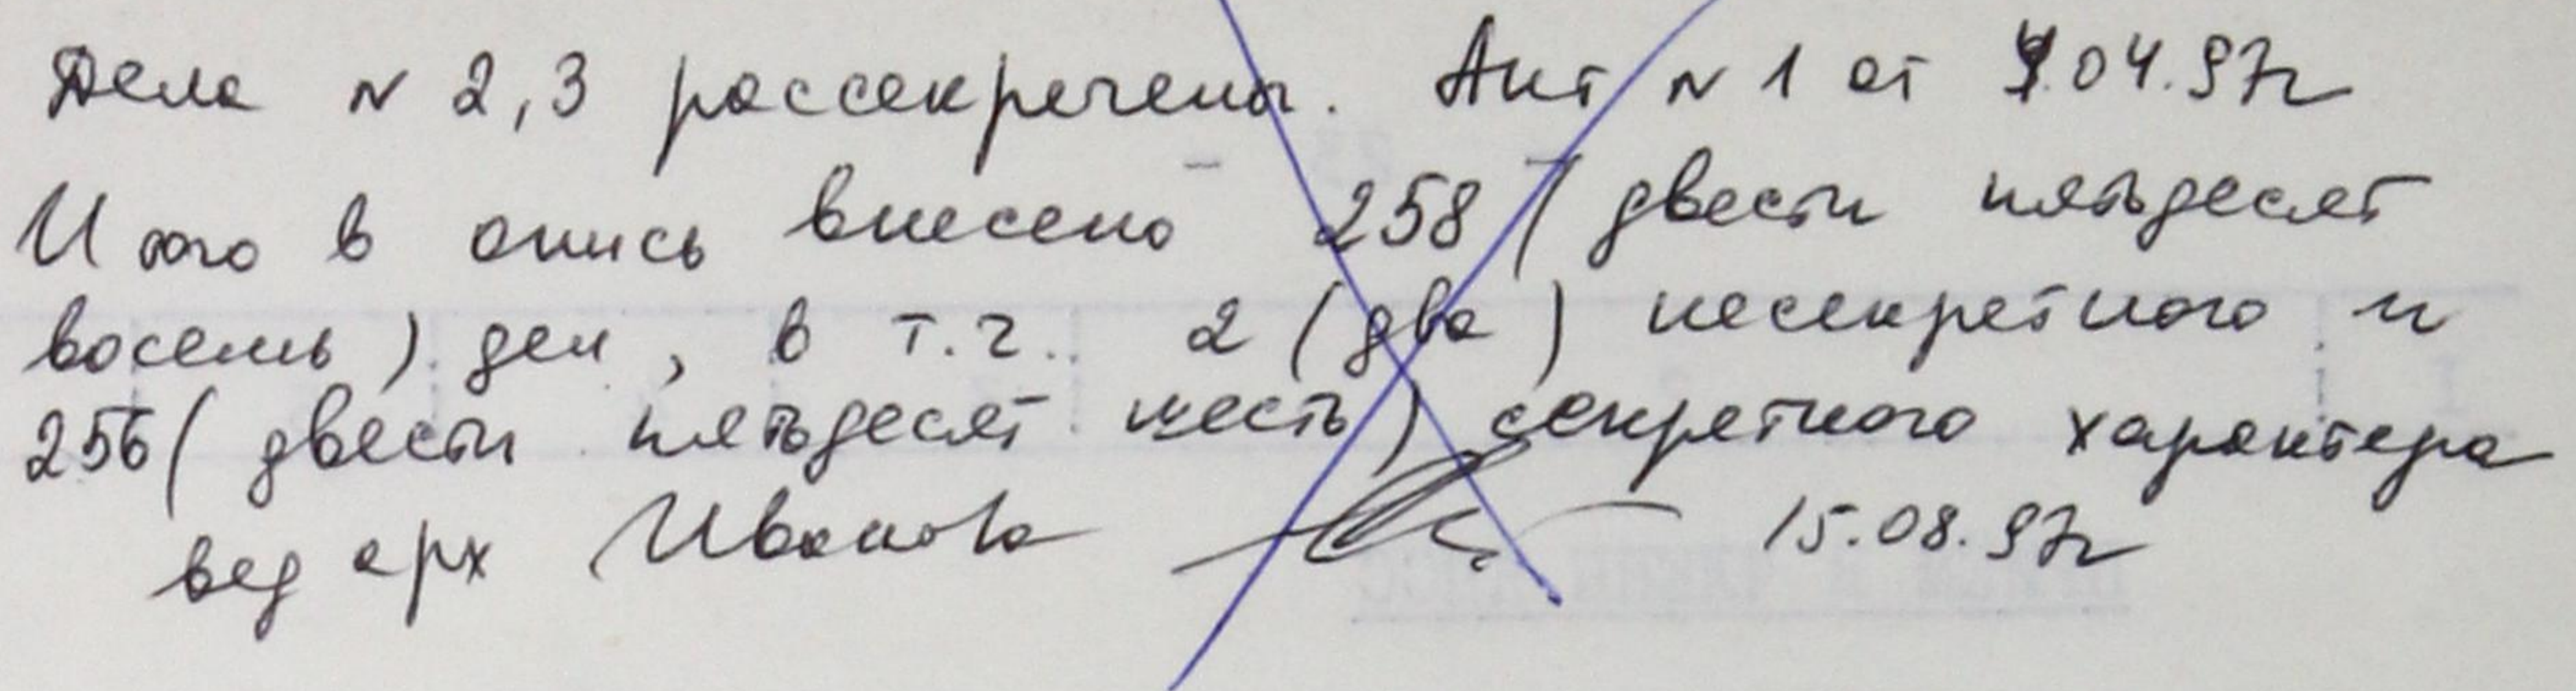 Дела N 2,3 рассекречены. Акт N 1 от 9.04.97г
Итого в опись внесено 258 (двести пятьдесят
восемь) дел, в т.ч. 2 (два) несекретного и
256 (двести пятьдесят шесть) секретного характера
вед арх Иванова 15.08.97г